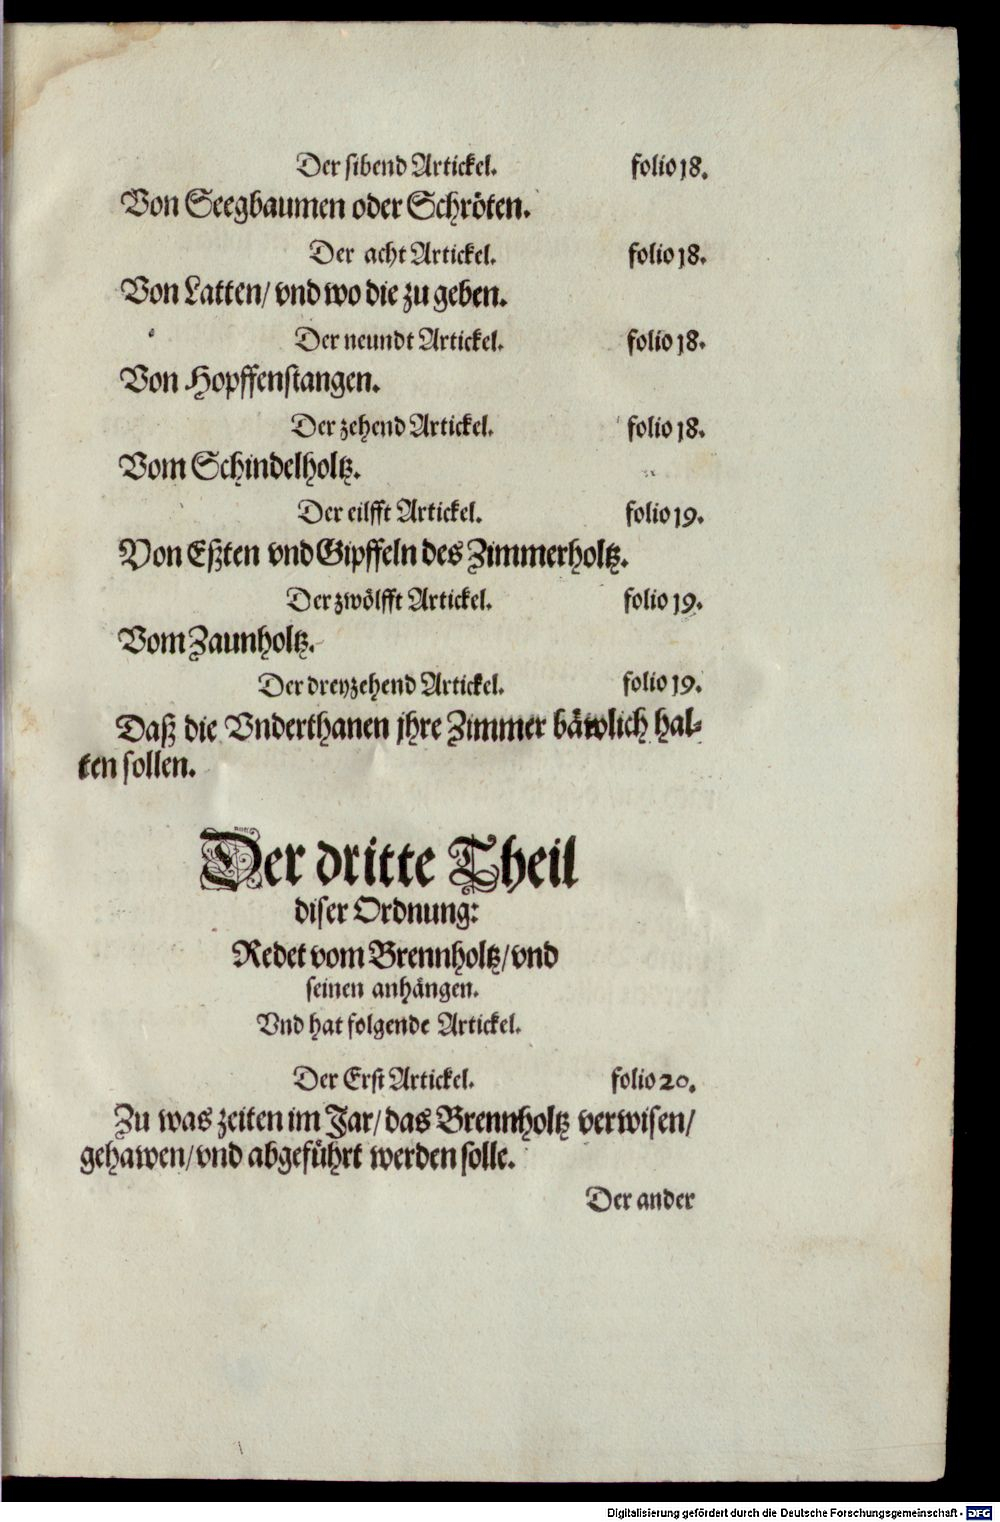 Der sibend Artickel. folio 18.
Von Seegbaumen oder Schröten.
Der acht Artickel. folio 18.
Von Latten/ vnd wo die zu geben.
Der neundt Artickel. folio 18.
Von Hopffenstangen.
Der zehend Artickel. folio 18.
Vom Schindelholtz.
Der eilfft Artickel. folio 19.
Von Eßten vnd Gipffeln des Zimmerholtz.
Der zwölfft Artickel. folio 19.
Vom Zaunholtz.
Der dreyzehend Artickel. folio 19.
Daß die Vnderthanen jhre Zimmer bäwlich hal-
ten sollen.
Der dritte Theil
diser Ordnung:
Redet vom Brennholtz/ vnd
seinen anhängen.
Vnd hat folgende Artickel.
Der Erst Artickel. folio 20.
Zu was zeiten im Jar/ das Brennholtz verwisen/
gehawen/ vnd abgeführt werden solle.
Der ander
Digitalisierung gefördert durch die Deutsche Forschungsgemeinschaft - DFG